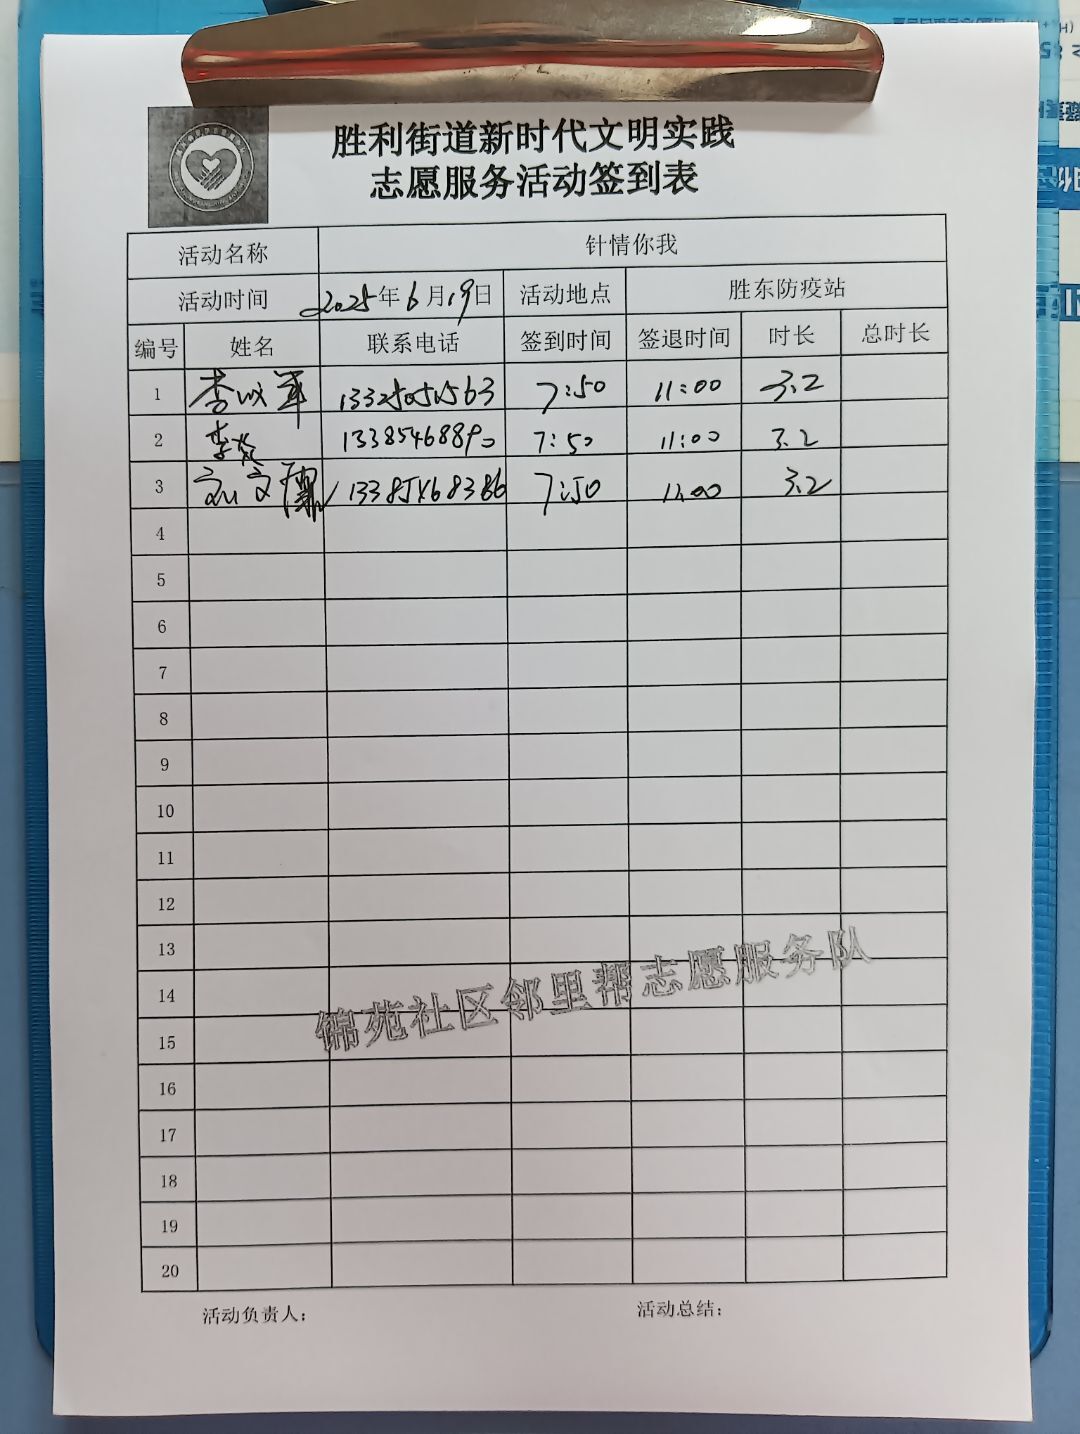 胜利街道新时代文明实践
志愿服务活动签到表
活动名称 针情你我
活动时间 2025年6月19日 活动地点 胜东防疫站
编号 姓名 联系电话 签到时间 签退时间 时长 总时长
1 李 军 13325051563 7:50 11:00 3.2
2 李 13385468890 7:50 11:00 3.2
3 刘文 13385468386 7:50 11:00 3.2
4
5
6
7
8
9
10
11
12
13
14
15
16
17
18
19
20
锦苑社区邻里帮志愿服务队
活动负责人: 活动总结: